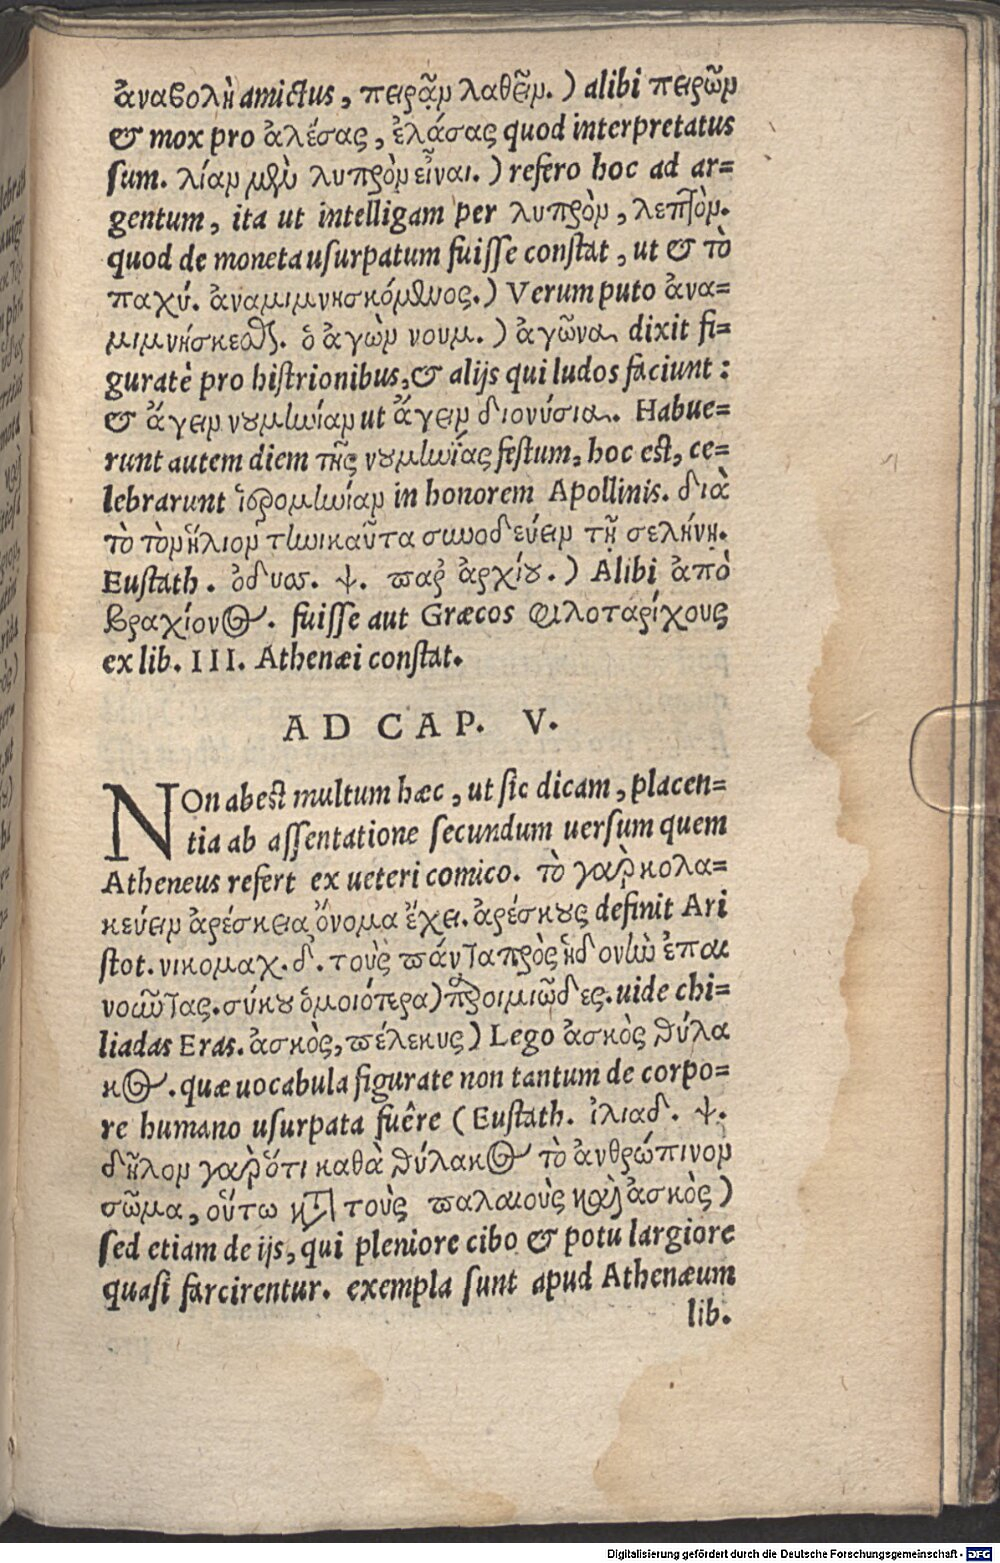 ἀναβολὴ amictus, πειρᾷν λαθεῖν.) alibi πειρῶν
& mox pro ἀλέσας, ἐλάσας quod interpretatus
sum. λίαν μὲν λυπρὸν εἶναι.) refero hoc ad ar=
gentum, ita ut intelligam per λυπρὸν, λεπτὸν.
quod de moneta usurpatum fuisse constat, ut & τὸ
παχύ. ἀναμιμνησκόμενος.) Verum puto ἀνα=
μιμνήσκεσθαι. ὁ ἀγὼν νουμ.) ἀγῶνα dixit fi=
guratè pro histrionibus, & alijs qui ludos faciunt:
& ἄγειν νουμηνίαν ut ἄγειν διονύσια. Habue=
runt autem diem τῆς νουμηνίας festum, hoc est, ce=
lebrarunt ἱδρομηνίαν in honorem Apollinis. διὰ
τὸ τὸν ἥλιον τηνικαῦτα συνοδεύειν τῇ σελήνῃ.
Eustath. ὀδυσ. ψ. παρ ἀρχίου.) Alibi ἀπὸ
βραχίονος. fuisse aut Græcos φιλοταρίχους
ex lib. III. Athenæi constat.
AD CAP. V.
NOn abest multum hæc, ut sic dicam, placen=
tia ab assentatione secundum uersum quem
Atheneus refert ex ueteri comico. τὸ γὰρ κολα=
κεύειν ἀρέσκεια ὄνομα ἔχει. ἀρέσκους definit Ari
stot. νικομαχ. δ. τοὺς πάντα πρὸς ἡδονὴν ἐπαι
νοῶντας. σύκου ὁμοιότερα) προιμιῶδες. uide chi=
liadas Eras. ἀσκὸς, πέλεκυς) Lego ἀσκὸς θύλα
κος. quæ uocabula figurate non tantum de corpo=
re humano usurpata fuêre (Eustath. ἰλιαδ. ψ.
δῆλον γὰρ ὅτι καθὰ θύλακος τὸ ἀνθρώπινον
σῶμα, οὕτω κατὰ τοὺς παλαιοὺς καὶ ἀσκὸς)
sed etiam de ijs, qui pleniore cibo & potu largiore
quasi farcirentur. exempla sunt apud Athenæum
lib.
Digitalisierung gefördert durch die Deutsche Forschungsgemeinschaft - DFG